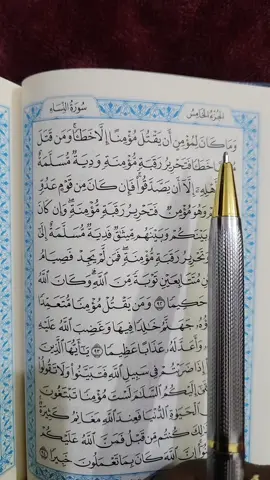 الجزء الخامس سورة النساء
وَمَا كَانَ لِمُؤْمِنٍ أَن يَقْتُلَ مُؤْمِنًا إِلَّا خَطَـًٔا وَمَن قَتَلَ
خَطَـًٔا فَتَحْرِيرُ رَقَبَةٍ مُّؤْمِنَةٍ وَدِيَةٌ مُّسَلَّمَةٌ
إِلَّآ أَن يَصَّدَّقُوا۟ فَإِن كَانَ مِن قَوْمٍ عَدُوٍّ
وَهُوَ مُؤْمِنٌ فَتَحْرِيرُ رَقَبَةٍ مُّؤْمِنَةٍ وَإِن كَانَ
بَيْنَكُمْ وَبَيْنَهُم مِّيثَٰقٌ فَدِيَةٌ مُّسَلَّمَةٌ إِلَىٰٓ
رَقَبَةٍ مُّؤْمِنَةٍ فَمَن لَّمْ يَجِدْ فَصِيَامُ
مُتَتَابِعَيْنِ تَوْبَةً مِّنَ ٱللَّهِ وَكَانَ ٱللَّهُ
حَكِيمًا ٩٢ وَمَن يَقْتُلْ مُؤْمِنًا مُّتَعَمِّدًا
جَهَنَّمُ خَٰلِدًا فِيهَا وَغَضِبَ ٱللَّهُ عَلَيْهِ
وَأَعَدَّ لَهُۥ عَذَابًا عَظِيمًا ٩٣ يَٰٓأَيُّهَا ٱلَّذِينَ
إِذَا ضَرَبْتُمْ فِى سَبِيلِ ٱللَّهِ فَتَبَيَّنُوا۟ وَلَا تَقُولُوا۟
إِلَيْكُمُ ٱلسَّلَٰمَ لَسْتَ مُؤْمِنًا تَبْتَغُونَ
ٱلْحَيَوٰةِ ٱلدُّنْيَا فَعِندَ ٱللَّهِ مَغَانِمُ كَثِيرَةٌ
كُنتُم مِّن قَبْلُ فَمَنَّ ٱللَّهُ عَلَيْكُمْ
إِنَّ ٱللَّهَ كَانَ بِمَا تَعْمَلُونَ خَبِيرًا ٩٤